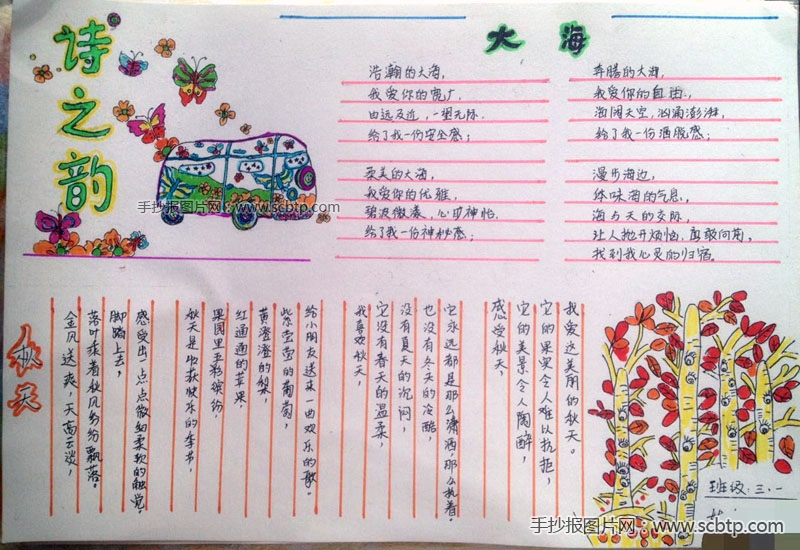 诗之韵
手抄报图片网:www.scbtp.com
大海
浩瀚的大海,
我爱你的宽广,
由远及近,一望无际.
给了我一份安全感;
柔美的大海,
我爱你的优雅,
碧波微凑,心旷神怡,
给了我一份神秘感;
奔腾的大海,
我爱你的自由,
海阔天空,汹涌澎湃,
给了我一份洒脱感;
漫步海边,
体味海的气息,
海与天的交际,
让人抛开烦恼,勇敢向前。
找到我心灵的归宿。
秋天
金风送爽,天高云淡,
落叶乘着秋风纷纷飘落。
脚踏上去,
感受出一点点微细柔软的触觉.
秋天是收获快乐的季节,
果园里五彩缤纷,
红通通的苹果
黄澄澄的梨
紫莹莹的葡萄,
给小朋友送来一曲欢乐的歌.
我喜欢秋天,
它没有春天的温柔,
没有夏天的沉闷,
也没有冬天的冷酷,
它永远都是那么潇洒那么执着.
感受秋天,
它的美景令人陶醉,
它的果实令人难以抗拒,
我爱这美丽的秋天。
班级:三.一
手抄报图片网:www.scbtp.com